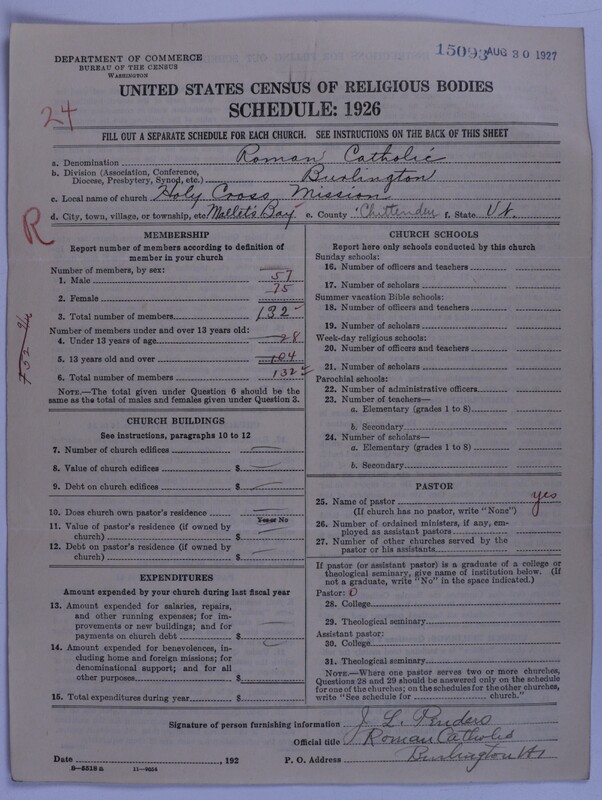 15093 AUG 30 1927
DEPARTMENT OF COMMERCE
BUREAU OF THE CENSUS
WASHINGTON
UNITED STATES CENSUS OF RELIGIOUS BODIES
SCHEDULE: 1926
24
FILL OUT A SEPARATE SCHEDULE FOR EACH CHURCH. SEE INSTRUCTIONS ON THE BACK OF THIS SHEET
a. Denomination Roman Catholic
b. Division (Association, Conference, Diocese, Presbytery, Synod, etc.) Burlington
c. Local name of church Holy Cross Mission
d. City, town, village, or township, etc. Mallets Bay e. County Chittenden f. State Vt.
R
MEMBERSHIP
Report number of members according to definition of
member in your church
Number of members, by sex:
1. Male 57
2. Female 75
3. Total number of members 132
Number of members under and over 13 years old:
4. Under 13 years of age 28
5. 13 years old and over 104
6. Total number of members 132
NOTE.—The total given under Question 6 should be
same as the total of males and females given under Question 3.
CHURCH BUILDINGS
See instructions, paragraphs 10 to 12
7. Number of church edifices
8. Value of church edifices $
9. Debt on church edifices $
10. Does church own pastor's residence?
Yes or No
11. Value of pastor's residence (if owned by
church) $
12. Debt on pastor's residence (if owned by
church) $
EXPENDITURES
Amount expended by your church during last fiscal year
13. Amount expended for salaries, repairs,
and other running expenses; for im-
provements or new buildings; and for
payments on church debt $
14. Amount expended for benevolences, in-
cluding home and foreign missions; for
denominational support; and for all
other purposes $
15. Total expenditures during year $
CHURCH SCHOOLS
Report here only schools conducted by this church
Sunday schools:
16. Number of officers and teachers
17. Number of scholars
Summer vacation Bible schools:
18. Number of officers and teachers
19. Number of scholars
Week-day religious schools:
20. Number of officers and teachers
21. Number of scholars
Parochial schools:
22. Number of administrative officers
23. Number of teachers—
a. Elementary (grades 1 to 8)
b. Secondary
24. Number of scholars—
a. Elementary (grades 1 to 8)
b. Secondary
PASTOR
25. Name of pastor yes
(If church has no pastor, write "None")
26. Number of ordained ministers, if any, em-
ployed as assistant pastors
27. Number of other churches served by the
pastor or his assistants
If pastor (or assistant pastor) is a graduate of a college or
theological seminary, give name of institution below. (If
not a graduate, write "No" in the space indicated.)
Pastor: 0
28. College
29. Theological seminary
Assistant pastor:
30. College
31. Theological seminary
NOTE.—Where one pastor serves two or more churches,
Questions 28 and 29 should be answered only on the schedule
for one of the churches; on the schedules for the other churches,
write "See schedule for church."
Signature of person furnishing information J. L. Penders
Official title Roman Catholic
Date , 192 P. O. Address Burlington Vt
8—5518 a 11—9664